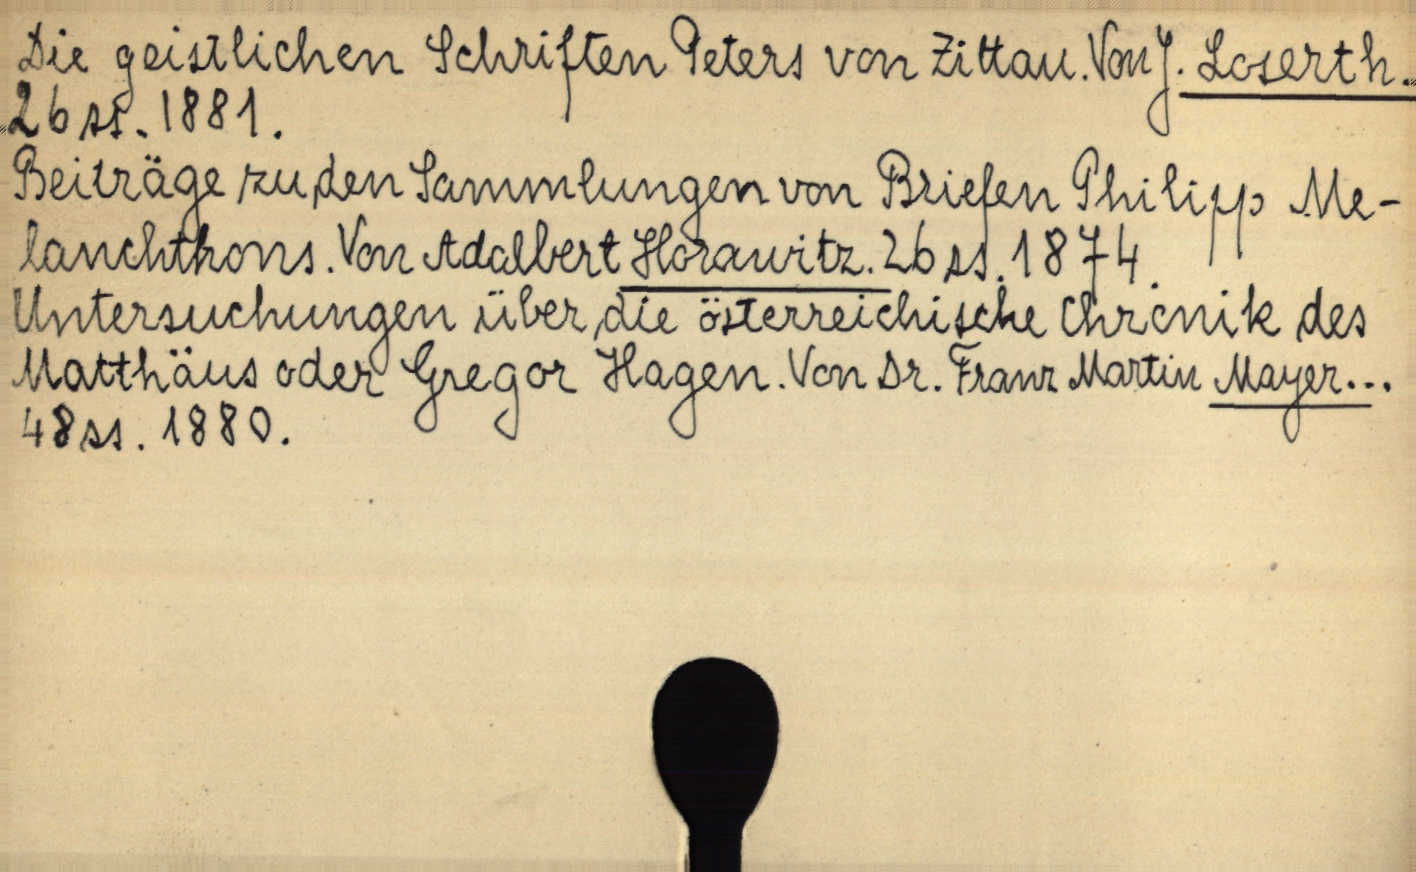 Die geistlichen Schriften Peters von Zittau. Von J. Loserth.
26 ss. 1881.
Beiträge zu den Sammlungen von Briefen Philipp Me-
lanchthons. Von Adalbert Horawitz. 26 ss. 1874.
Untersuchungen über die österreichische Chronik des
Matthäus oder Gregor Hagen. Von Dr. Franz Martin Mayer...
48 ss. 1880.